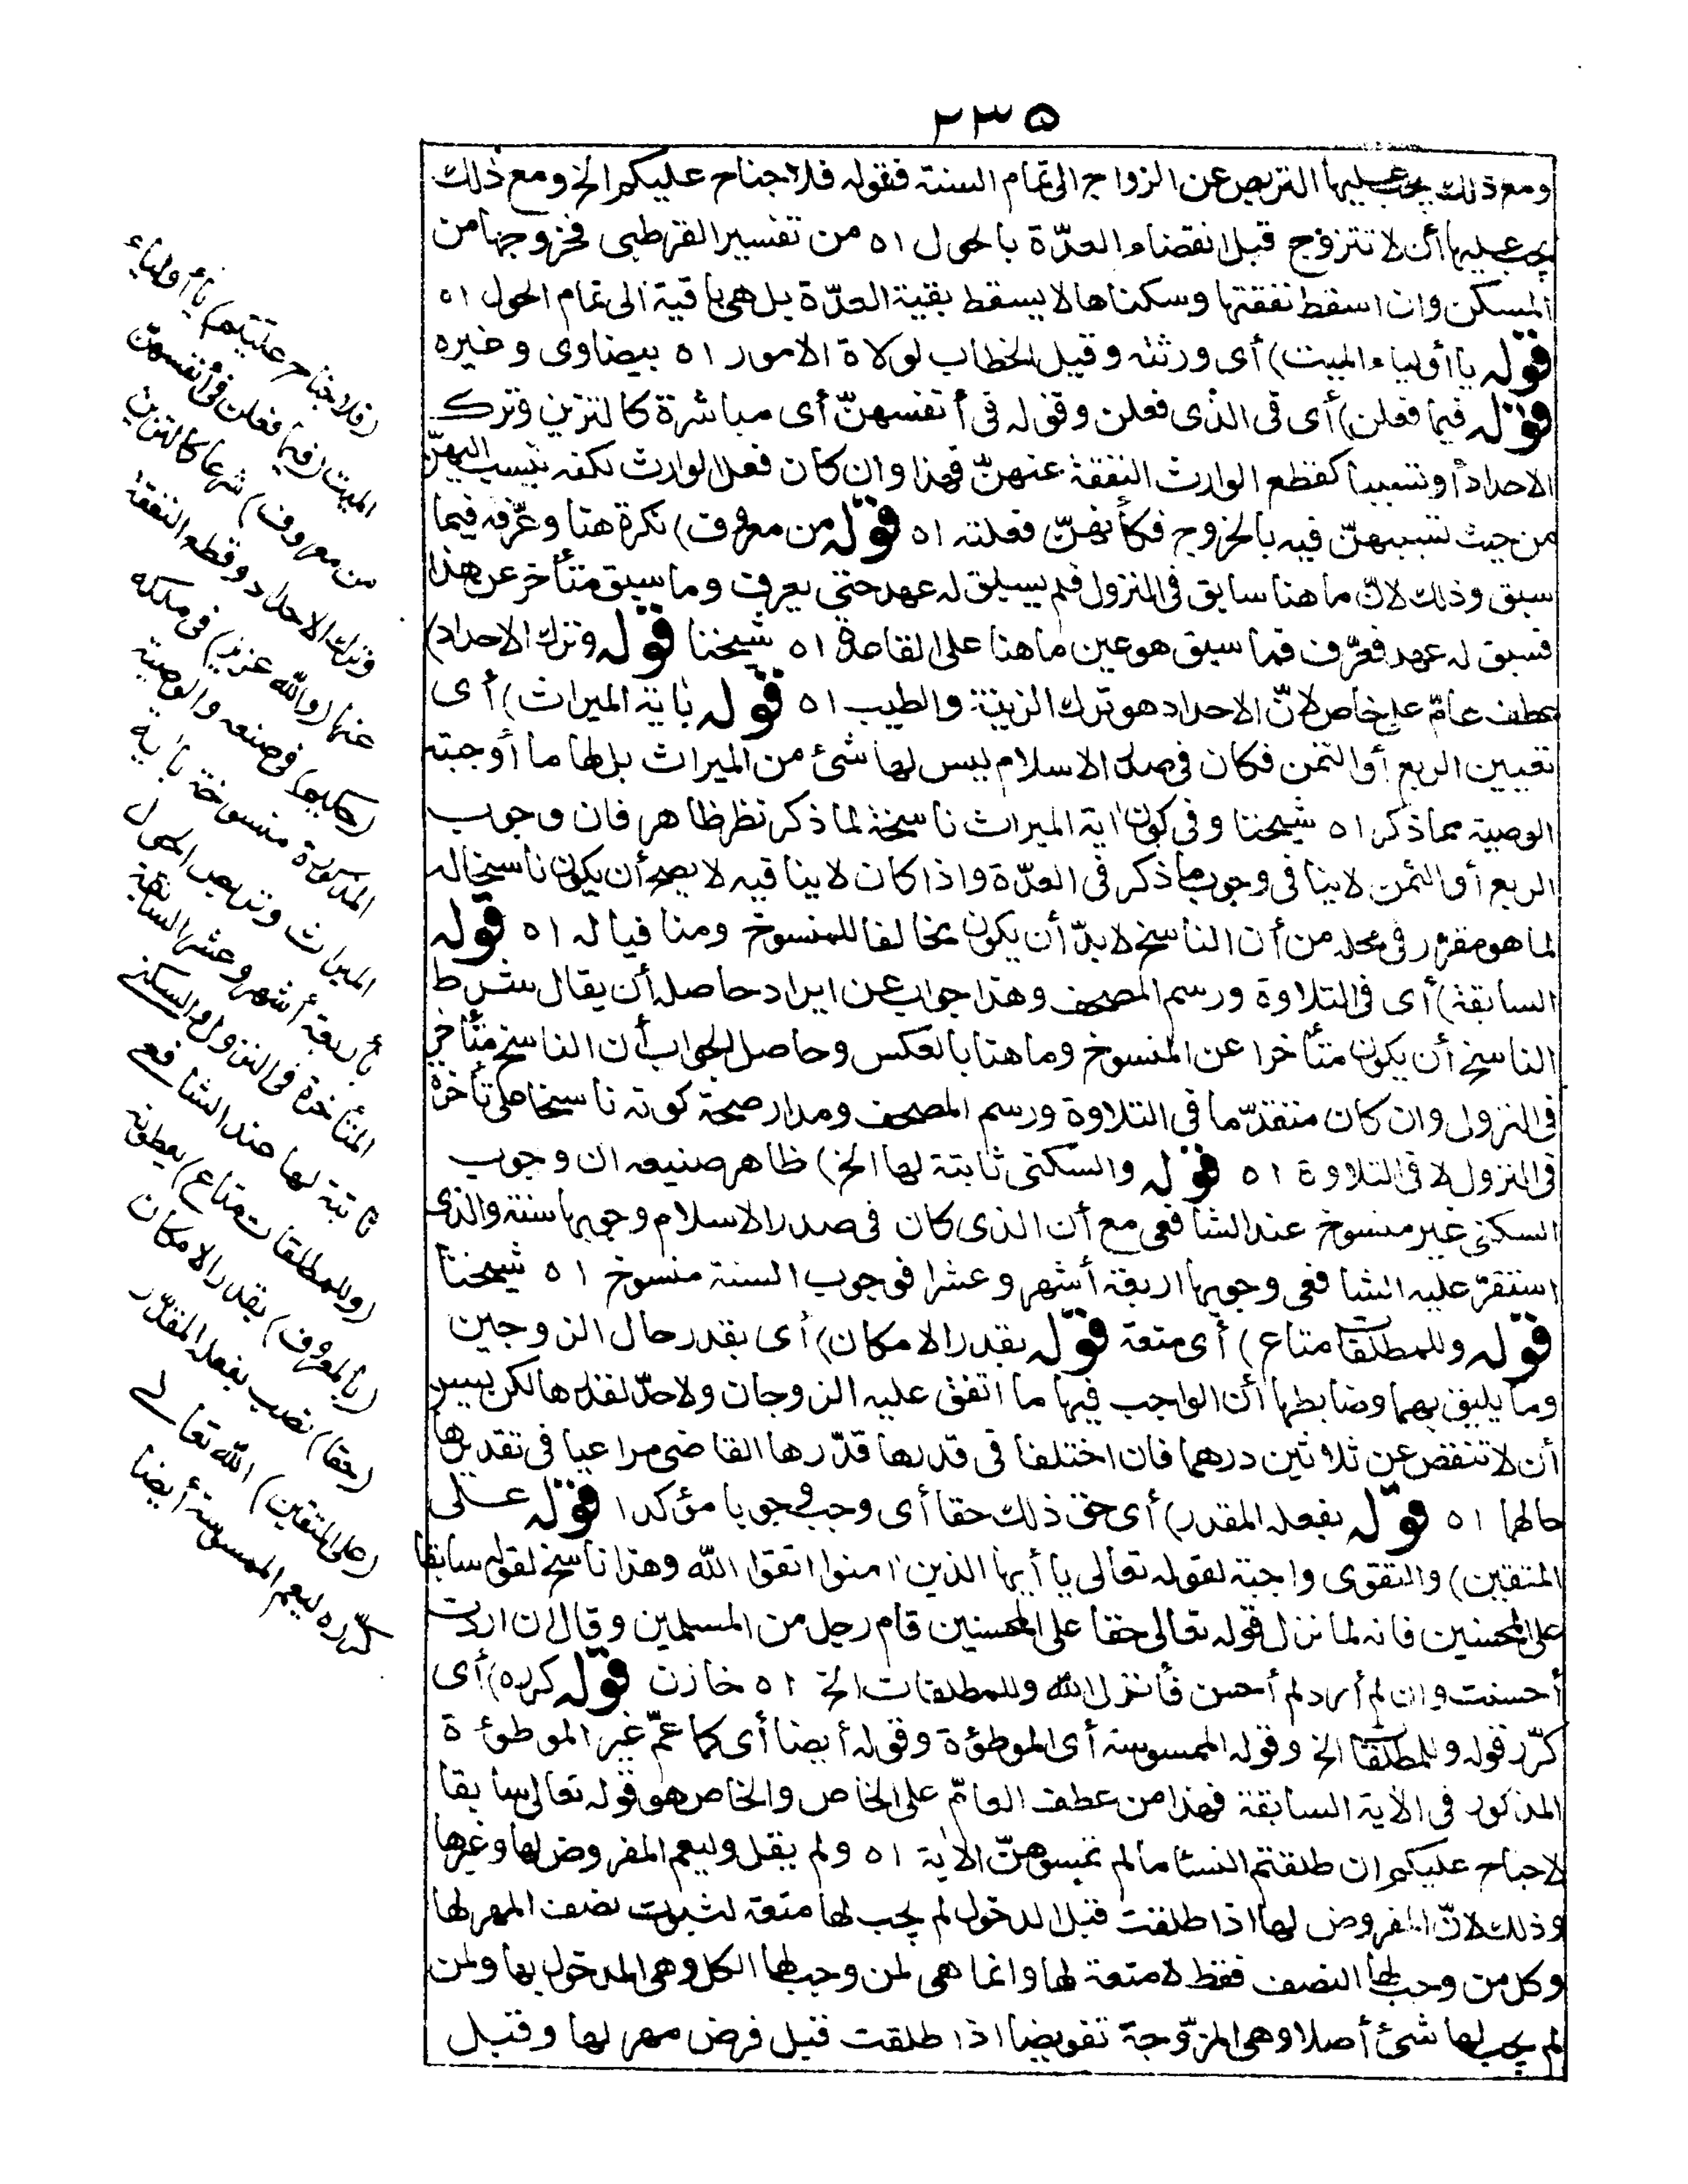 ٢٣٥
ومع ذلك يجب عليها التربص عن الزواج الى تمام السنة فقوله فلا جناح عليكم الخ ومع ذلك
يجب عليها أن لا تتزوج قبل انقضاء العدّة بالحول اه من تفسير القرطبى فخروجها من
المسكن وان اسقط نفقتها وسكناها لا يسقط بقية العدّة بل هى باقية الى تمام الحول اه
قوله يا أولياء الميت) أى ورثته وقيل الخطاب لولاة الامور اه بيضاوى وغيره
قوله فيما فعلن) أى فى الذى فعلن وقوله فى أنفسهنّ أى مباشرة كالتزين وترك
الاحداد أو تسببا كقطع الوارث النفقة عنهنّ فهذا وان كان فعل الوارث لكنه ينسب اليهنّ
من حيث تسببهنّ فيه بالخروج فكأنهنّ فعلنه اه قوله من معروف) نكرة هنا وعرّفه فيما
سبق وذلك لانّ ما هنا سابق فى النزول فلم يسبق له عهد حتى يعرف وما سبق متأخر عن هذا
فسبق له عهد فعرّف فما سبق هو عين ما هنا على القاعدة اه شيخنا قوله وترك الاحداد)
عطف عامّ على خاص لانّ الاحداد هو ترك الزينة والطيب اه قوله باية الميراث) أى
تعيين الربع أو الثمن فكان فى صدر الاسلام ليس لها شئ من الميراث بل لها ما أوجبته
الوصية مما ذكر اه شيخنا وفى كون اية الميراث ناسخة لما ذكر نظر ظاهر فان وجوب
الربع أو الثمن لا ينافى وجوب ما ذكر فى العدّة واذا كان لا ينافيه لا يصح أن يكون ناسخا له
لما هو مقرّر فى محله من أن الناسخ لا بدّ أن يكون مخالفا للمنسوخ ومنافيا له اه قوله
السابقة) أى فى التلاوة ورسم المصحف وهذا جواب عن ايراد حاصله أن يقال شرط
الناسخ أن يكون متأخرا عن المنسوخ وما هنا بالعكس وحاصل الجواب أن الناسخ متأخر
فى النزول وان كان متقدّما فى التلاوة ورسم المصحف ومدار صحة كونه ناسخا على تأخره
فى النزول لا فى التلاوة اه قوله والسكنى ثابتة لها الخ) ظاهر صنيعه ان وجوب
السكنى غير منسوخ عند الشافعى مع أن الذى كان فى صدر الاسلام وجوبها سنة والذى
استقرّ عليه الشافعى وجوبها اربعة أشهر وعشرا فوجوب السنة منسوخ اه شيخنا
قوله وللمطلقات متاع) أى متعة قوله بقدر الامكان) أى بقدر حال الزوجين
وما يليق بهما وضابطها أن الواجب فيها ما اتفق عليه الزوجان ولا حدّ لقدرها لكن يسن
أن لا تنقص عن ثلاثين درهما فان اختلفا فى قدرها قدّرها القاضى مراعيا فى تقديرها
حالهما اه قوله بفعله المقدر) أى حق ذلك حقا أى وجب وجوبا مؤكدا قوله على
المتقين) والتقوى واجبة لقوله تعالى يا أيها الذين امنوا اتقوا الله وهذا ناسخ لقوله سابقا
على المحسنين فانه لما نزل قوله تعالى حقا على المحسنين قام رجل من المسلمين وقال ان اردت
أحسنت وان لم أرد لم أحسن فأنزل الله وللمطلقات الخ اه خازن قوله كرره) أى
كرّر قوله وللمطلقات الخ وقوله الممسوسة أى الموطؤة وقوله أيضا أى كما عمّ غير الموطؤة
المذكور فى الاية السابقة فهذا من عطف العامّ على الخاص والخاص هو قوله تعالى سابقا
لا جناح عليكم ان طلقتم النساء ما لم تمسوهنّ الاية اه ولم يقل وليعم المفروض لها وغيرها
وذلك لانّ المفروض لها اذا طلقت قبل الدخول لم يجب لها متعة لثبوت نصف المهر لها
وكل من وجب لها النصف فقط لا متعة لها وانما هى لمن وجب لها الكل وهى المدخول بها ولمن
لم يجب لها شئ أصلا وهى المزوّجة تفويضا اذا طلقت قبل فرض مهر لها وقبل
(فلا جناح عليكم) يا أولياء
الميت (فيما فعلن فى أنفسهن
من معروف) شرعا كالتزين
وترك الاحداد وقطع النفقة
عنها (والله عزيز) فى ملكه
(حكيم) فى صنعه والوصية
المذكورة منسوخة باية
الميراث وتربص الحول
بأربعة أشهر وعشر السابقة
المتأخرة فى النزول والسكنى
ثابتة لها عند الشافعى
(وللمطلقات متاع) يعطونه
(بالمعروف) بقدر الامكان
(حقا) نصب بفعله المقدّر
(على المتقين) الله تعالى
كرّره ليعم الممسوسة أيضا